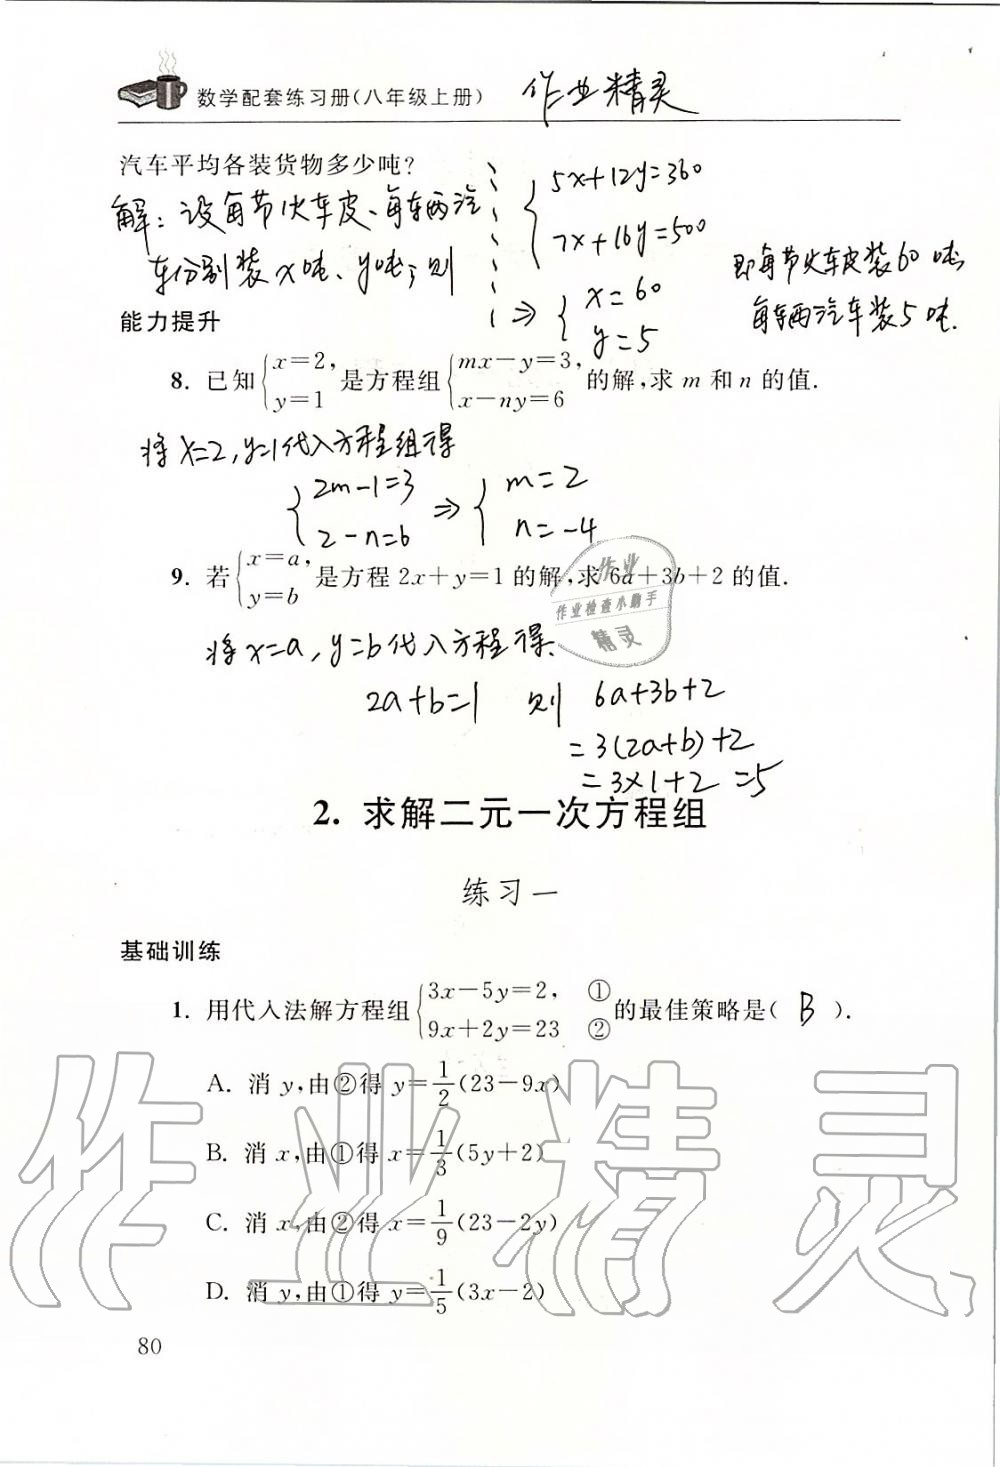 数学配套练习册(八年级上册) 作业精灵
汽车平均各装货物多少吨?
解:设每节火车皮、每车两汽
车分别装x吨、y吨,则
{5x+12y=360
7x+16y=500
⇒ {x=60
y=5
即每节火车皮装60吨,
每车两汽车装5吨.
能力提升
8. 已知{x=2, y=1 是方程组{mx-y=3, x-ny=6 的解,求 m 和 n 的值.
将x=2,y=1代入方程组得
{2m-1=3 2-n=6 ⇒ {m=2 n=-4
9. 若{x=a, y=b 是方程 2x+y=1 的解,求 6a+3b+2 的值.
将x=a,y=b代入方程得.
2a+b=1 则 6a+3b+2
=3(2a+b)+2
=3×1+2=5
作业
作业检查小助手
精灵
2. 求解二元一次方程组
练习一
基础训练
1. 用代入法解方程组{3x-5y=2, ① 9x+2y=23 ② 的最佳策略是( B ).
A. 消 y,由②得 y=1/2(23-9x)
B. 消 x,由①得 x=1/3(5y+2)
C. 消 x,由②得 x=1/9(23-2y)
D. 消 y,由①得 y=1/5(3x-2)
80
作业精灵